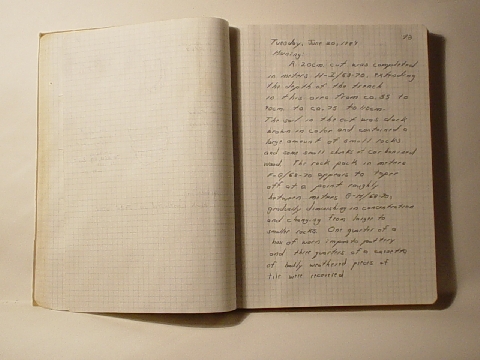 73
Tuesday, June 20, 1989
Morning:
A 20cm cut was completed
in meters H-2/68-70, extending
the depth of the trench
in this area from ca. 55 to
ca. 75 to
The soil in the cut was dark
brown in color and contained a
large amount of small rocks
and some small chunks of carbonized
wood. The rock pack in meters
/68-70 appears to taper
off at a point roughly
between meters /68-70,
gradually diminishing in concentration
and changing from larger to
smaller rocks. One quarter of a
box of worn impasto pottery
and three quarters of a cassetta
of badly weathered pieces of
tile were recovered